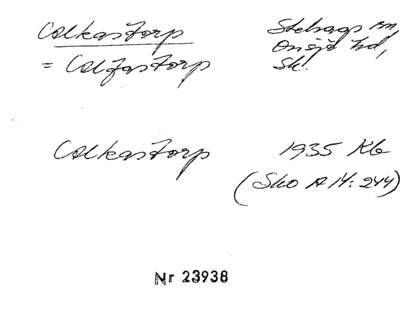 Colkastorp
= Coljastorp
Stehags sn,
Onsjö hd,
Sk.
Colkastorp 1935 Kb
(Sko A 14: 244)
Nr 23938